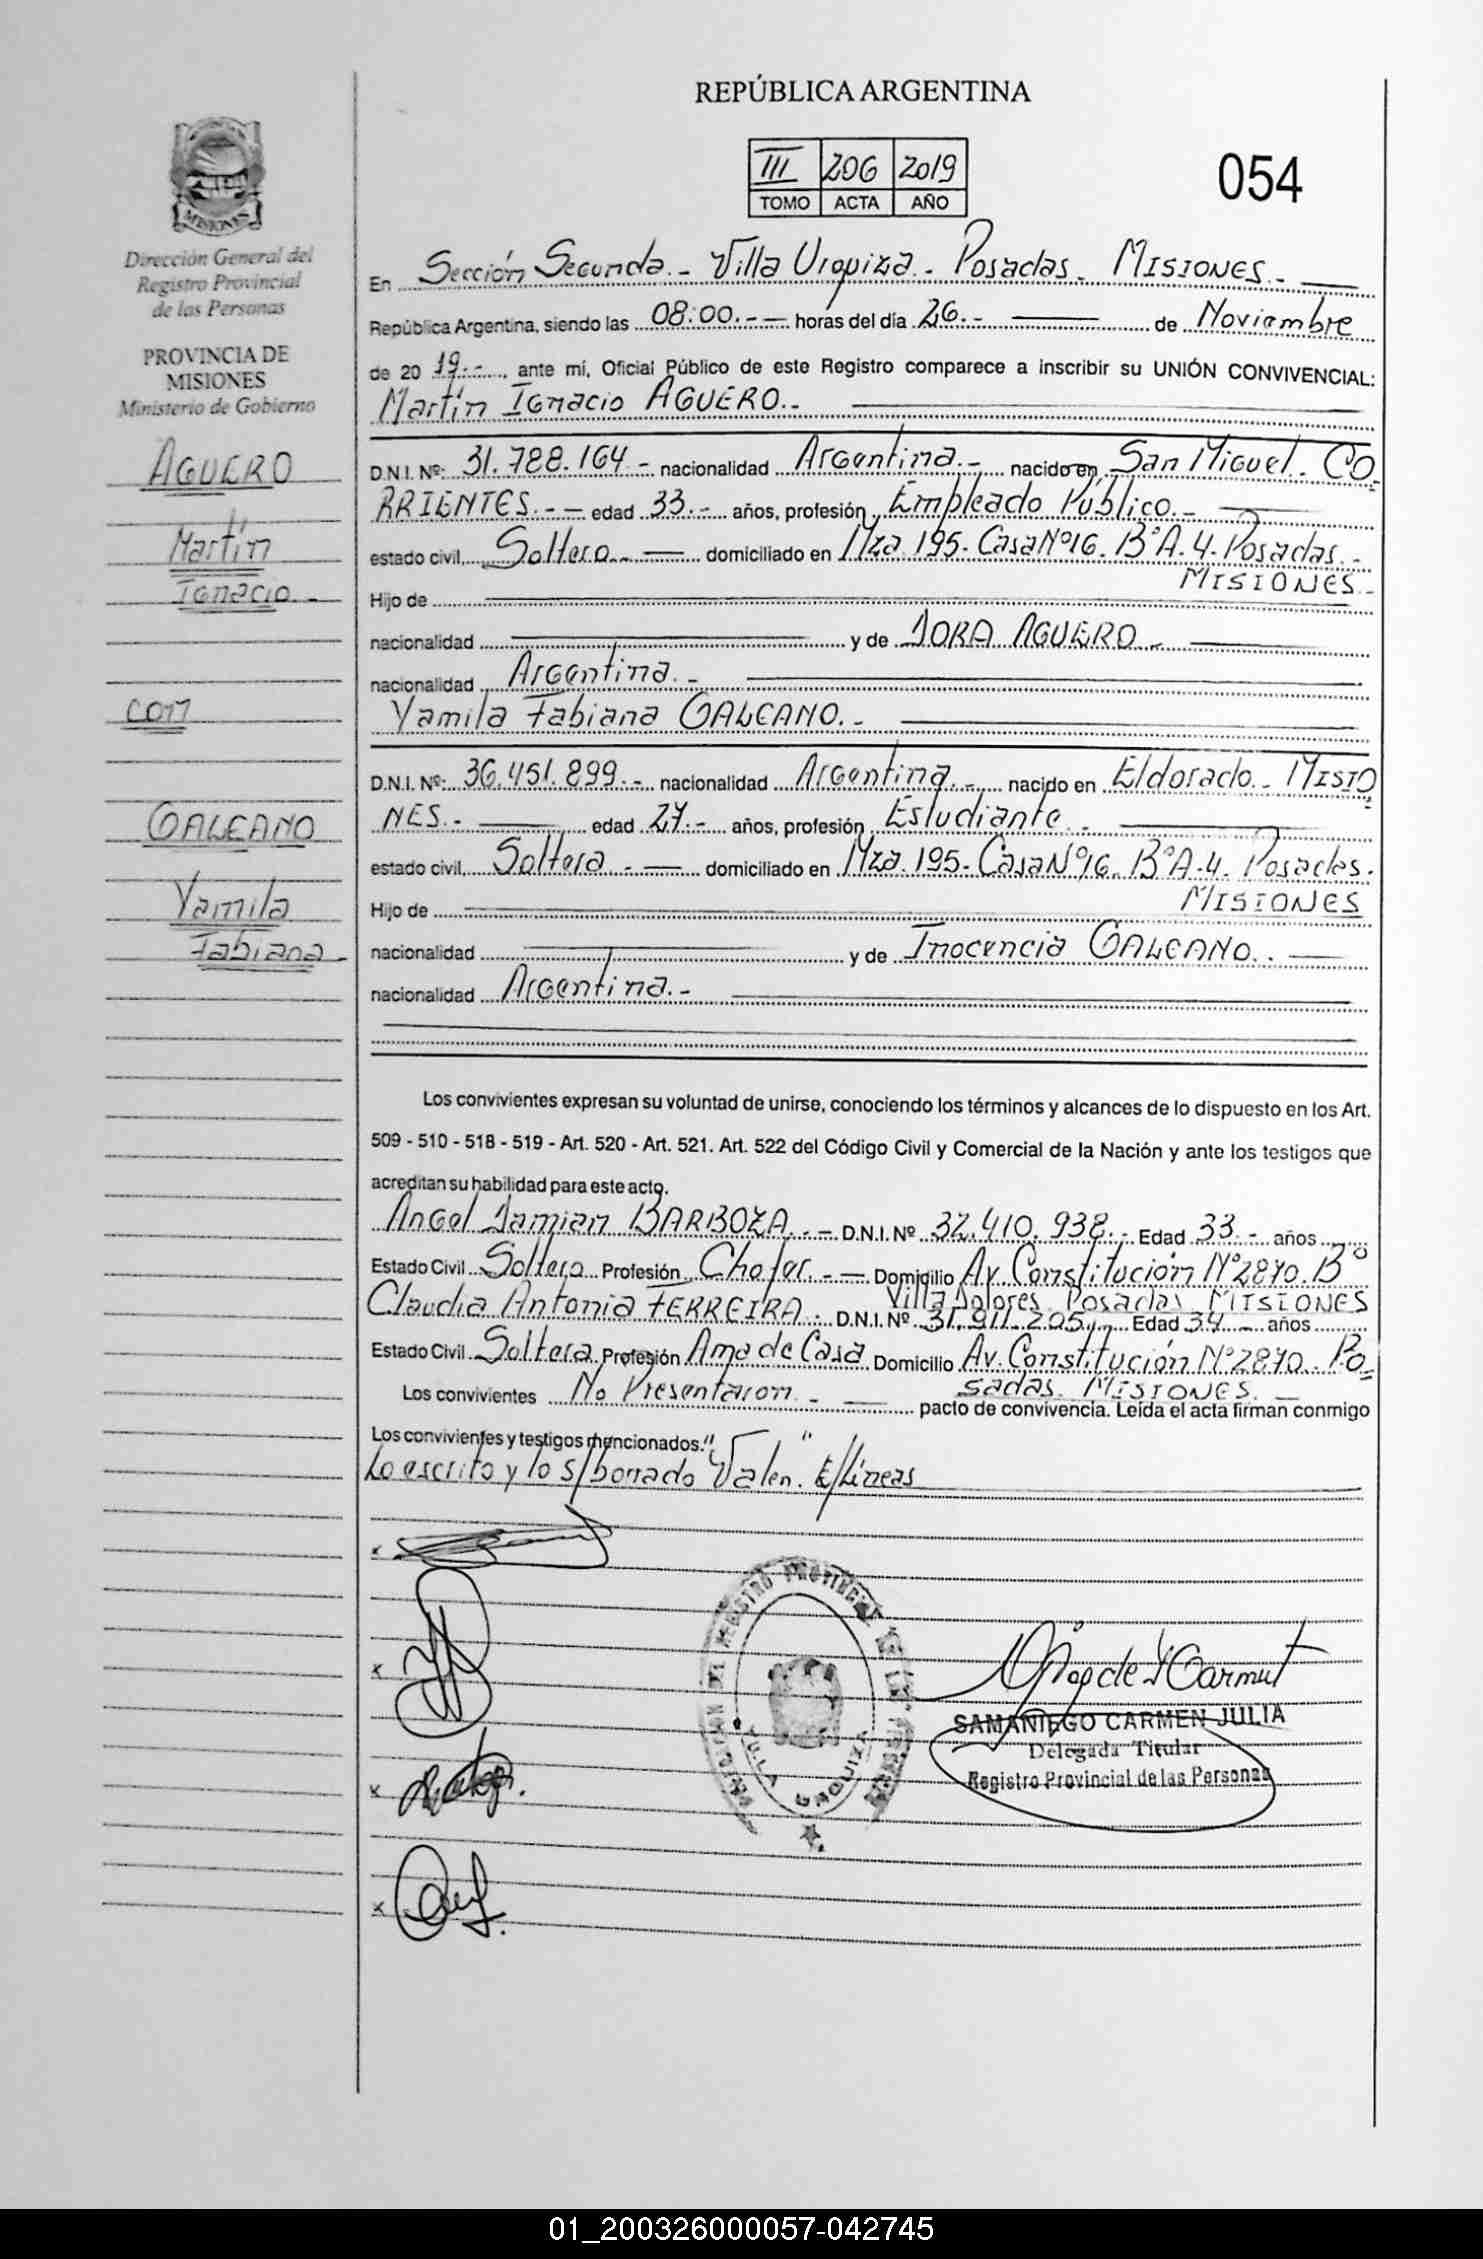 REPÚBLICA ARGENTINA
III 206 2019
TOMO ACTA AÑO
054
MISIONES
Dirección General del
Registro Provincial
de las Personas
PROVINCIA DE
MISIONES
Ministerio de Gobierno
AGUERO
Martín
Ignacio.-
con
GALEANO
Yamila
Fabiana.-
En Sección Segunda.- Villa Urquiza.- Posadas.- MISIONES.-
República Argentina, siendo las 08:00.-- horas del día 26.- de Noviembre
de 20 19.- , ante mí, Oficial Público de este Registro comparece a inscribir su UNIÓN CONVIVENCIAL:
Martín Ignacio AGUERO.-
D.N.I. Nº: 31.788.164.- nacionalidad Argentina.- nacido en San Miguel. CO
RRIENTES.-- edad 33.- años, profesión Empleado Público.-
estado civil Soltero.- domiciliado en Mza. 195. Casa Nº16. BºA.4. Posadas.-
MISIONES.-
Hijo de
nacionalidad y de DORA AGUERO.-
nacionalidad Argentina.-
Yamila Fabiana GALEANO.-
D.N.I. Nº: 36.451.899.- nacionalidad Argentina.- nacido en Eldorado.- MISIO
NES.- edad 27.- años, profesión Estudiante.-
estado civil Soltera.- domiciliado en Mza. 195. Casa Nº16. BºA.4. Posadas.
MISIONES
Hijo de
nacionalidad y de Inocencia GALEANO.-
nacionalidad Argentina.-
Los convivientes expresan su voluntad de unirse, conociendo los términos y alcances de lo dispuesto en los Art.
509 - 510 - 518 - 519 - Art. 520 - Art. 521. Art. 522 del Código Civil y Comercial de la Nación y ante los testigos que
acreditan su habilidad para este acto.
Angel Damian BARBOZA.- D.N.I. Nº 32.410.938.- Edad 33.- años
Estado Civil Soltero Profesión Chofer.- Domicilio Av. Constitución Nº2870. Bº
Villa Dolores. Posadas. MISIONES
Claudia Antonia FERREIRA. D.N.I. Nº 31.911.205 Edad 34.- años
Estado Civil Soltera Profesión Ama de Casa Domicilio Av. Constitución Nº2870. Po
sadas. MISIONES.-
Los convivientes No Presentaron.- pacto de convivencia. Leída el acta firman conmigo
Los convivientes y testigos mencionados."
Lo escrito y lo s/borrado "Valen." E/Líneas
x
x
x
x
REGISTRO PROVINCIAL DE LAS PERSONAS
VILLA URQUIZA
SAMANIEGO CARMEN JULIA
Delegada Titular
Registro Provincial de las Personas
01_200326000057-042745